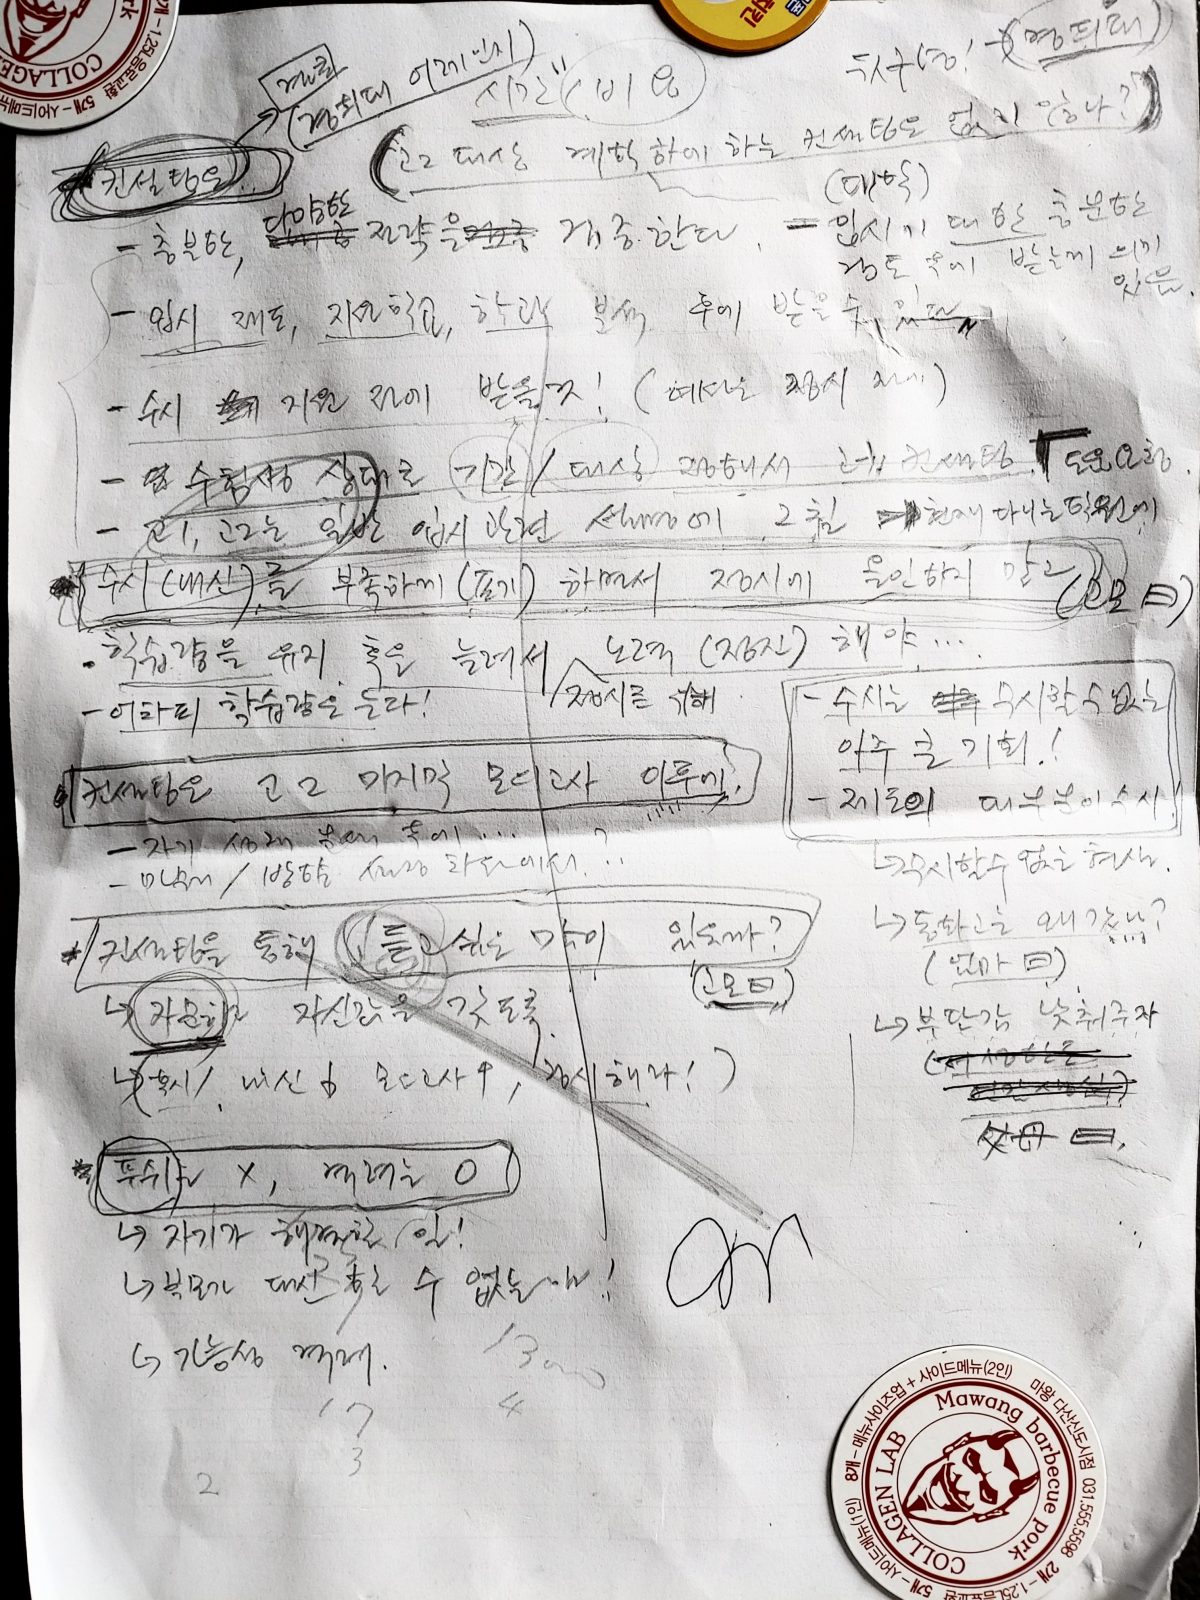 시간 (비용
(경희대
컨설팅은..
(고2 대상 계획하에 하는 컨설팅은 없지 않나?)
(대학)
- 충분한, 다양한 전략을 제공한다.
- 입시에 대한 충분한
검토 후에 받는게 의미
있음.
- 입시 제도, 지원학교, 학과 분석 후에 받을 수 있다
- 수시 지원 전에 받을것! (예산은 정시 전에)
- 수험생 상대로 기간/대상 정해서 컨설팅. 도움요청.
- 고1, 고2는 일반 입시 관련 설명에 그침 현재 다니는 학원에
* 수시(내신)를 부족하게(포기) 하면서 정시에 올인하지 말고
(고모 曰)
. 학습량을 유지 혹은 늘려서 노력(정진) 해야...
정시를 위해
- 어차피 학습량은 는다!
- 수시는 무시할 수 없는
아주 큰 기회!
- 제도의 대부분이 수시!
컨설팅은 고2 마지막 모의고사 이후에!
- 자기 성적 분석 후에...?
↳ 무시할 수 없는 현상.
↳ 동화고는 왜 갔니?
(엄마 曰)
* 컨설팅을 통해 듣고 싶은 말이 있을까?
(고모曰)
↳ 자신감을 갖도록.
↳ 부담감 낮춰주자
↳ (혹시/ 내신 6 모의고사 4, 정시해라!)
父母 曰.
* 푸쉬는 X, 격려는 O
↳ 자기가 해결할 일!
↳ 부모가 대신 할 수 없는 일!
↳ 가능성 격려.
17
3
4
2
COLLAGEN LAB
Mawang barbecue pork
마왕 다산신도시점 031.555.5598
8개-메뉴사이즈업+사이드메뉴(2인)
2개-1.25L음료교환
5개-사이드메뉴(1인)